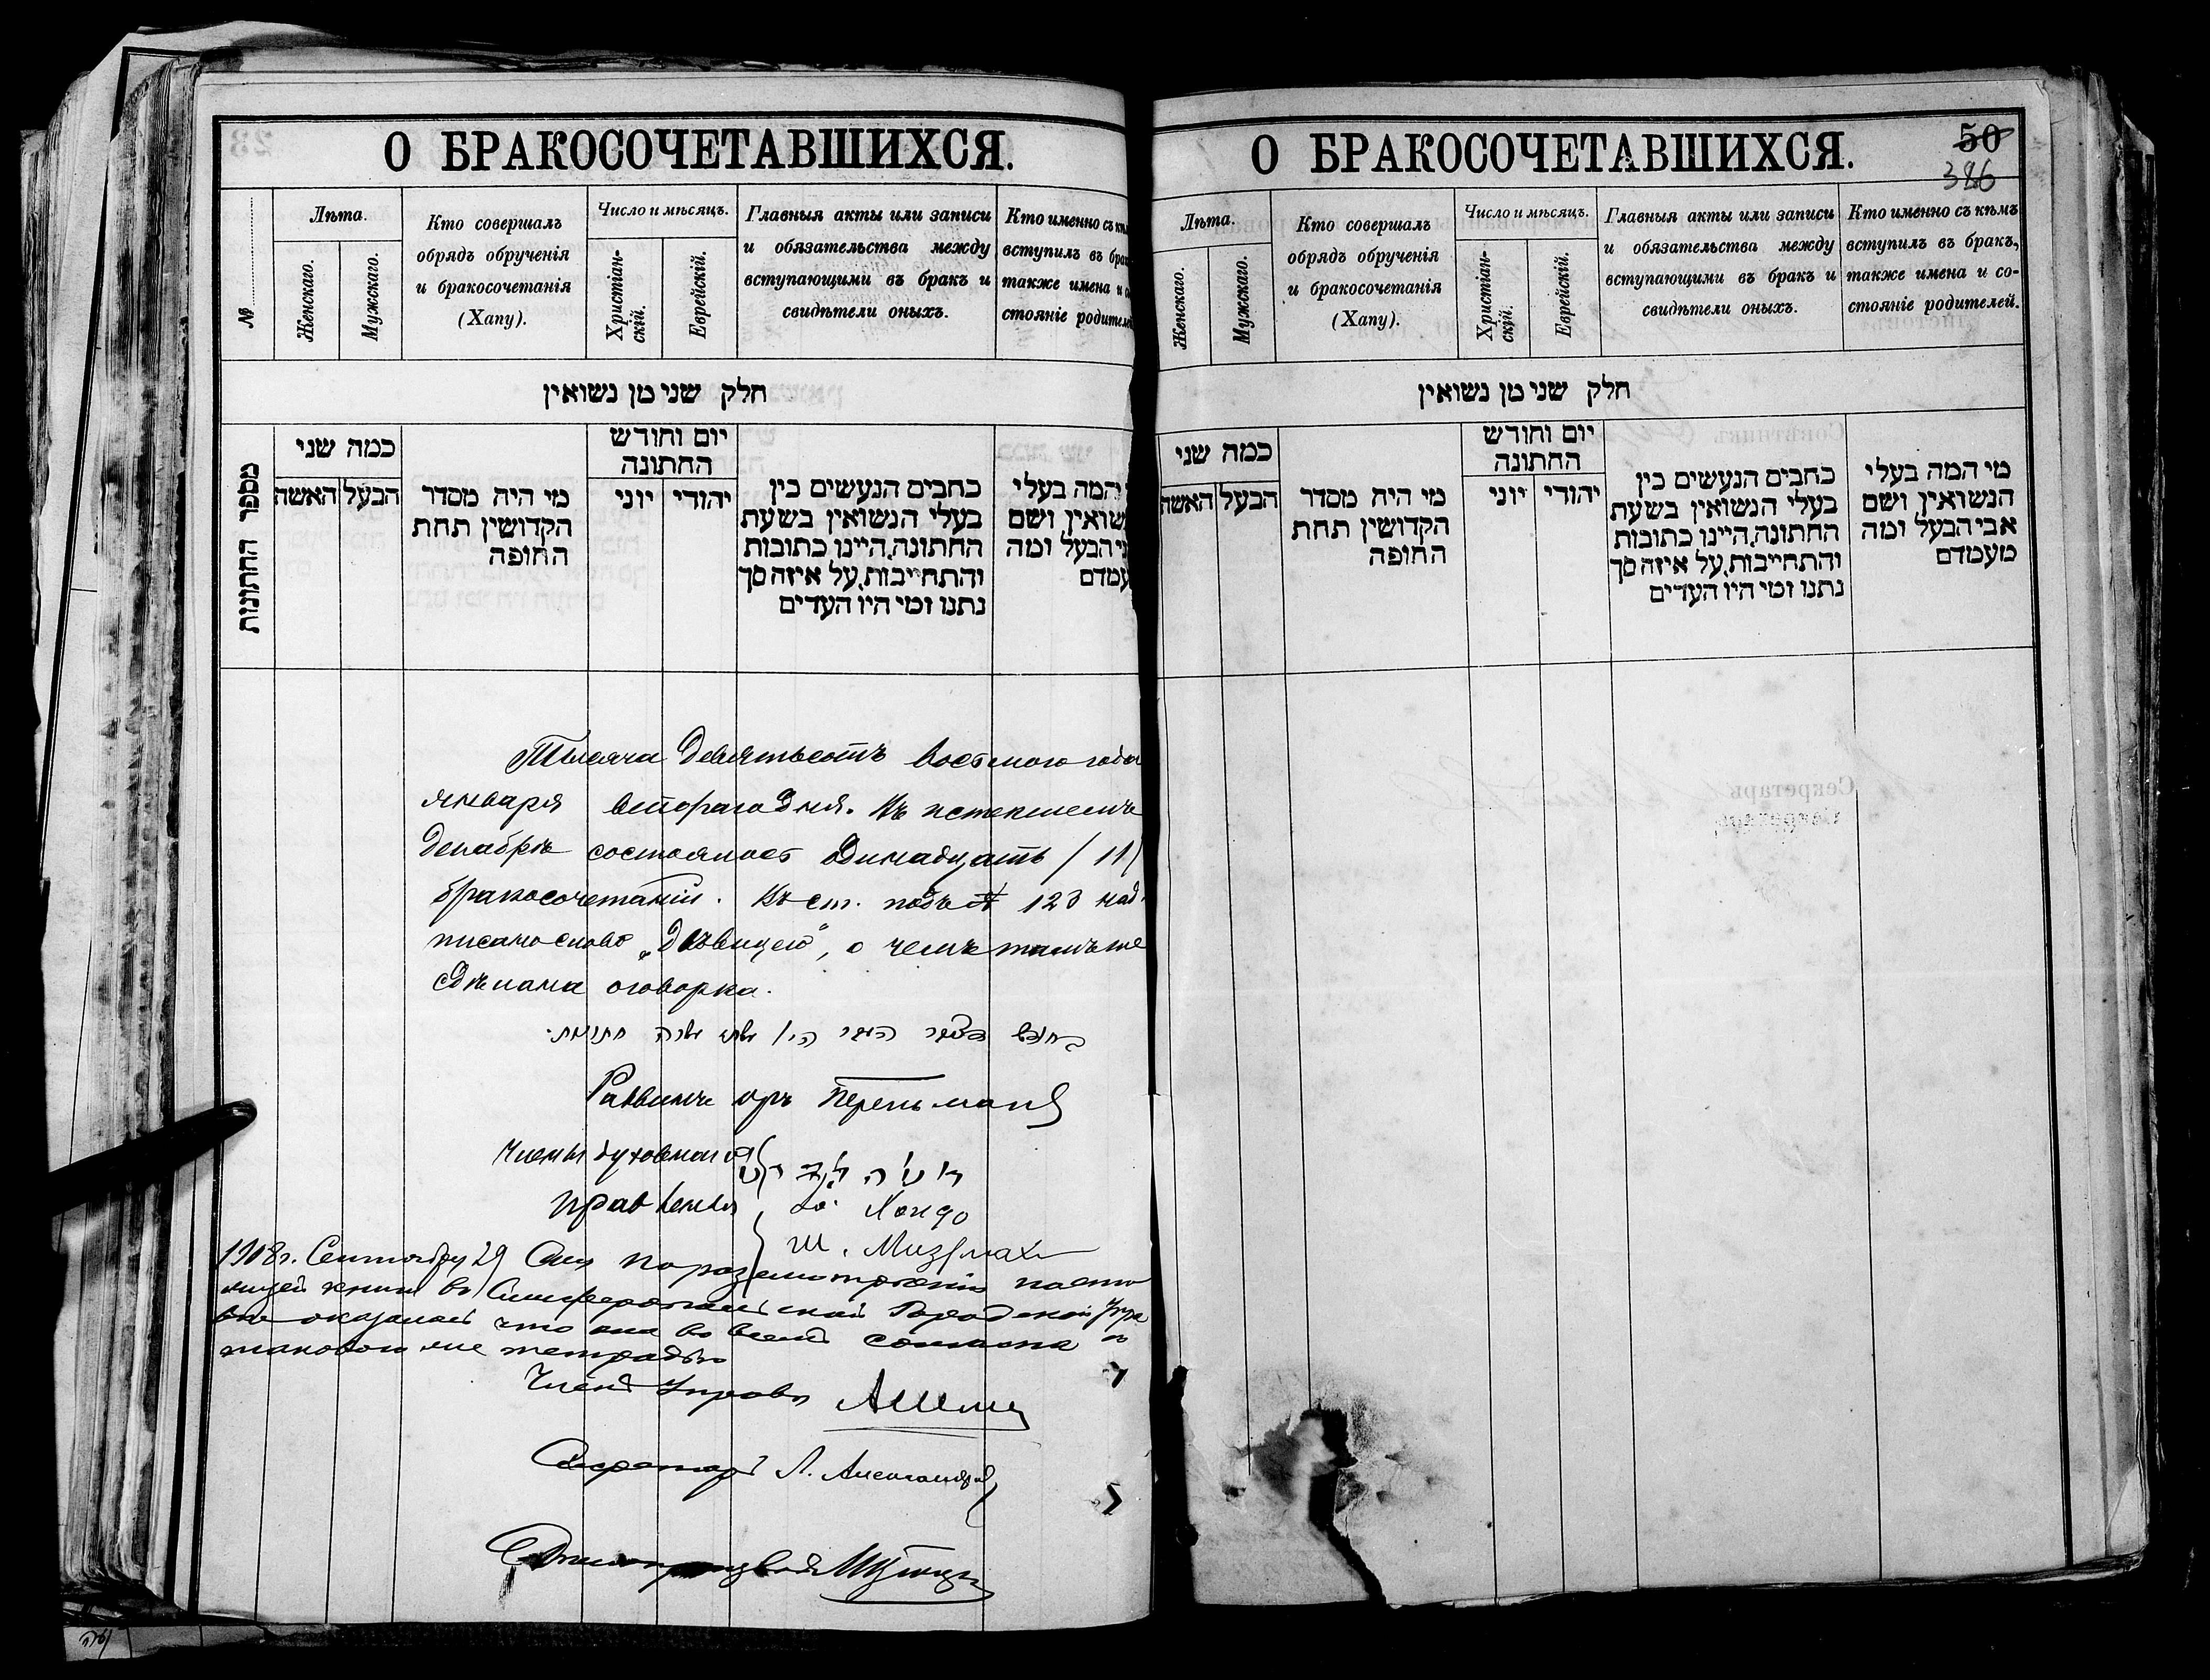 О БРАКОСОЧЕТАВШИХСЯ.
№
Лѣта.
Женскаго.
Мужскаго.
Кто совершалъ
обрядъ обрученія
и бракосочетанія
(Хапу).
Число и мѣсяцъ.
Христіан-
скій.
Еврейскій.
Главныя акты или записи
и обязательства между
вступающими въ бракъ и
свидѣтели оныхъ.
Кто именно съ
вступилъ въ
также имена и
стояніе
חלק שני מן נשואין
מספר החתונות
כמה שני
האשה
הבעל
מי היה מסדר
הקדושין תחת
החופה
יום וחודש
החתונה
יוני
יהודי
כתבים הנעשים בין
בעלי הנשואין בשעת
החתונה,היינו כתובות
והתחייבות,על איזה סך
נתנו ומי היו העדים
המה בעלי
ושם
הבעל ומה
Тысяча девятьсотъ восьмого года
января второго дня. Въ истекшемъ
декабрѣ состоялось одинадцать /11/
бракосочетаній. Въ ст. подъ № 123 над-
писано слово „дѣвицею", о чемъ тамъ же
сдѣлана оговорка.
Раввинъ Перельманъ
Члены духовнаго
правленія
1908 г. Сентября 29 дня по разсмотрѣніи насто
ящей книги въ Симферопольской Городской Упра
вѣ оказалось что она во всемъ согласна съ
таковою же тетрадью
Членъ Управы
Секретарь Л. Александров
О БРАКОСОЧЕТАВШИХСЯ.
50
386
Лѣта.
Женскаго.
Мужскаго.
Кто совершалъ
обрядъ обрученія
и бракосочетанія
(Хапу).
Число и мѣсяцъ.
Христіан-
скій.
Еврейскій.
Главныя акты или записи
и обязательства между
вступающими въ бракъ и
свидѣтели оныхъ.
Кто именно съ кѣмъ
вступилъ въ бракъ,
также имена и со-
стояніе родителей.
חלק שני מן נשואין
כמה שני
האשה
הבעל
מי היה מסדר
הקדושין תחת
החופה
יום וחודש
החתונה
יוני
יהודי
כתבים הנעשים בין
בעלי הנשואין בשעת
החתונה,היינו כתובות
והתחייבות,על איזה סך
נתנו ומי היו העדים
מי המה בעלי
הנשואין ושם
אבי הבעל ומה
מעמדם